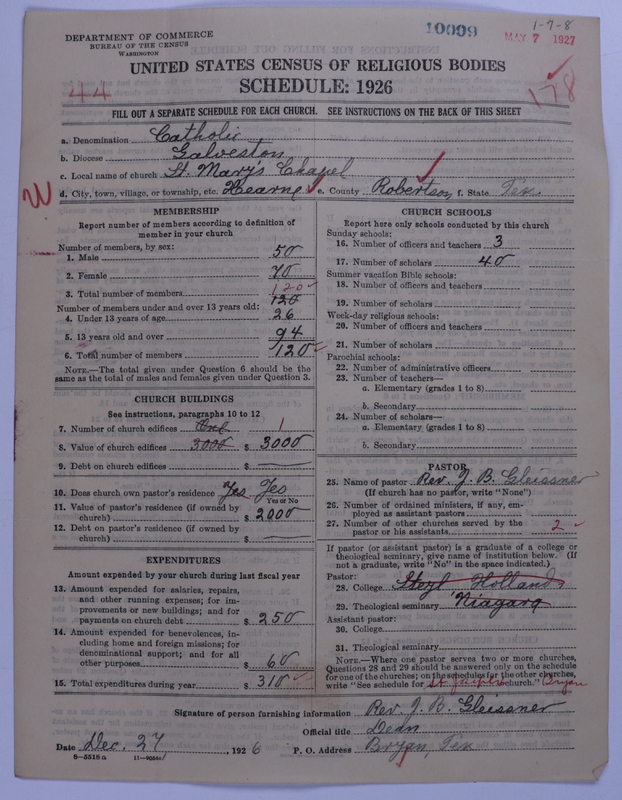 1-7-8
DEPARTMENT OF COMMERCE
BUREAU OF THE CENSUS
WASHINGTON
10009
MAY 7 1927
UNITED STATES CENSUS OF RELIGIOUS BODIES
SCHEDULE: 1926
44
178
FILL OUT A SEPARATE SCHEDULE FOR EACH CHURCH. SEE INSTRUCTIONS ON THE BACK OF THIS SHEET
a. Denomination Catholic
b. Diocese Galveston
c. Local name of church St. Mary's Chapel
W
d. City, town, village, or township, etc. Hearne e. County Robertson f. State Tex
MEMBERSHIP
Report number of members according to definition of
member in your church
Number of members, by sex:
1. Male 50
2. Female 70
120
3. Total number of members 120
Number of members under and over 13 years old:
4. Under 13 years of age 26
5. 13 years old and over 94
6. Total number of members 120
NOTE.—The total given under Question 6 should be the
same as the total of males and females given under Question 3.
CHURCH BUILDINGS
See instructions, paragraphs 10 to 12
7. Number of church edifices One 1
8. Value of church edifices 3000 $ 3000
9. Debt on church edifices $
10. Does church own pastor's residence Yes Yes
Yes or No
11. Value of pastor's residence (if owned by
church) $ 2000
12. Debt on pastor's residence (if owned by
church) $
EXPENDITURES
Amount expended by your church during last fiscal year
13. Amount expended for salaries, repairs,
and other running expenses; for im-
provements or new buildings; and for
payments on church debt $ 250
14. Amount expended for benevolences, in-
cluding home and foreign missions; for
denominational support; and for all
other purposes $ 60
15. Total expenditures during year $ 310
CHURCH SCHOOLS
Report here only schools conducted by this church
Sunday schools:
16. Number of officers and teachers 3
17. Number of scholars 40
Summer vacation Bible schools:
18. Number of officers and teachers
19. Number of scholars
Week-day religious schools:
20. Number of officers and teachers
21. Number of scholars
Parochial schools:
22. Number of administrative officers
23. Number of teachers—
a. Elementary (grades 1 to 8)
b. Secondary
24. Number of scholars—
a. Elementary (grades 1 to 8)
b. Secondary
PASTOR
25. Name of pastor Rev. J. B. Gleissner
(If church has no pastor, write "None")
26. Number of ordained ministers, if any, em-
ployed as assistant pastors
27. Number of other churches served by the
pastor or his assistants 2
If pastor (or assistant pastor) is a graduate of a college or
theological seminary, give name of institution below. (If
not a graduate, write "No" in the space indicated.)
Pastor:
28. College Steyl Holland
29. Theological seminary Niagara
Assistant pastor:
30. College
31. Theological seminary
NOTE.—Where one pastor serves two or more churches,
Questions 28 and 29 should be answered only on the schedule
for one of the churches; on the schedules for the other churches,
write "See schedule for St Joseph's church." Bryan
Signature of person furnishing information Rev. J. B. Gleissner
Official title Dean
Date Dec. 27, 1926 P. O. Address Bryan, Tex
8—5518 a